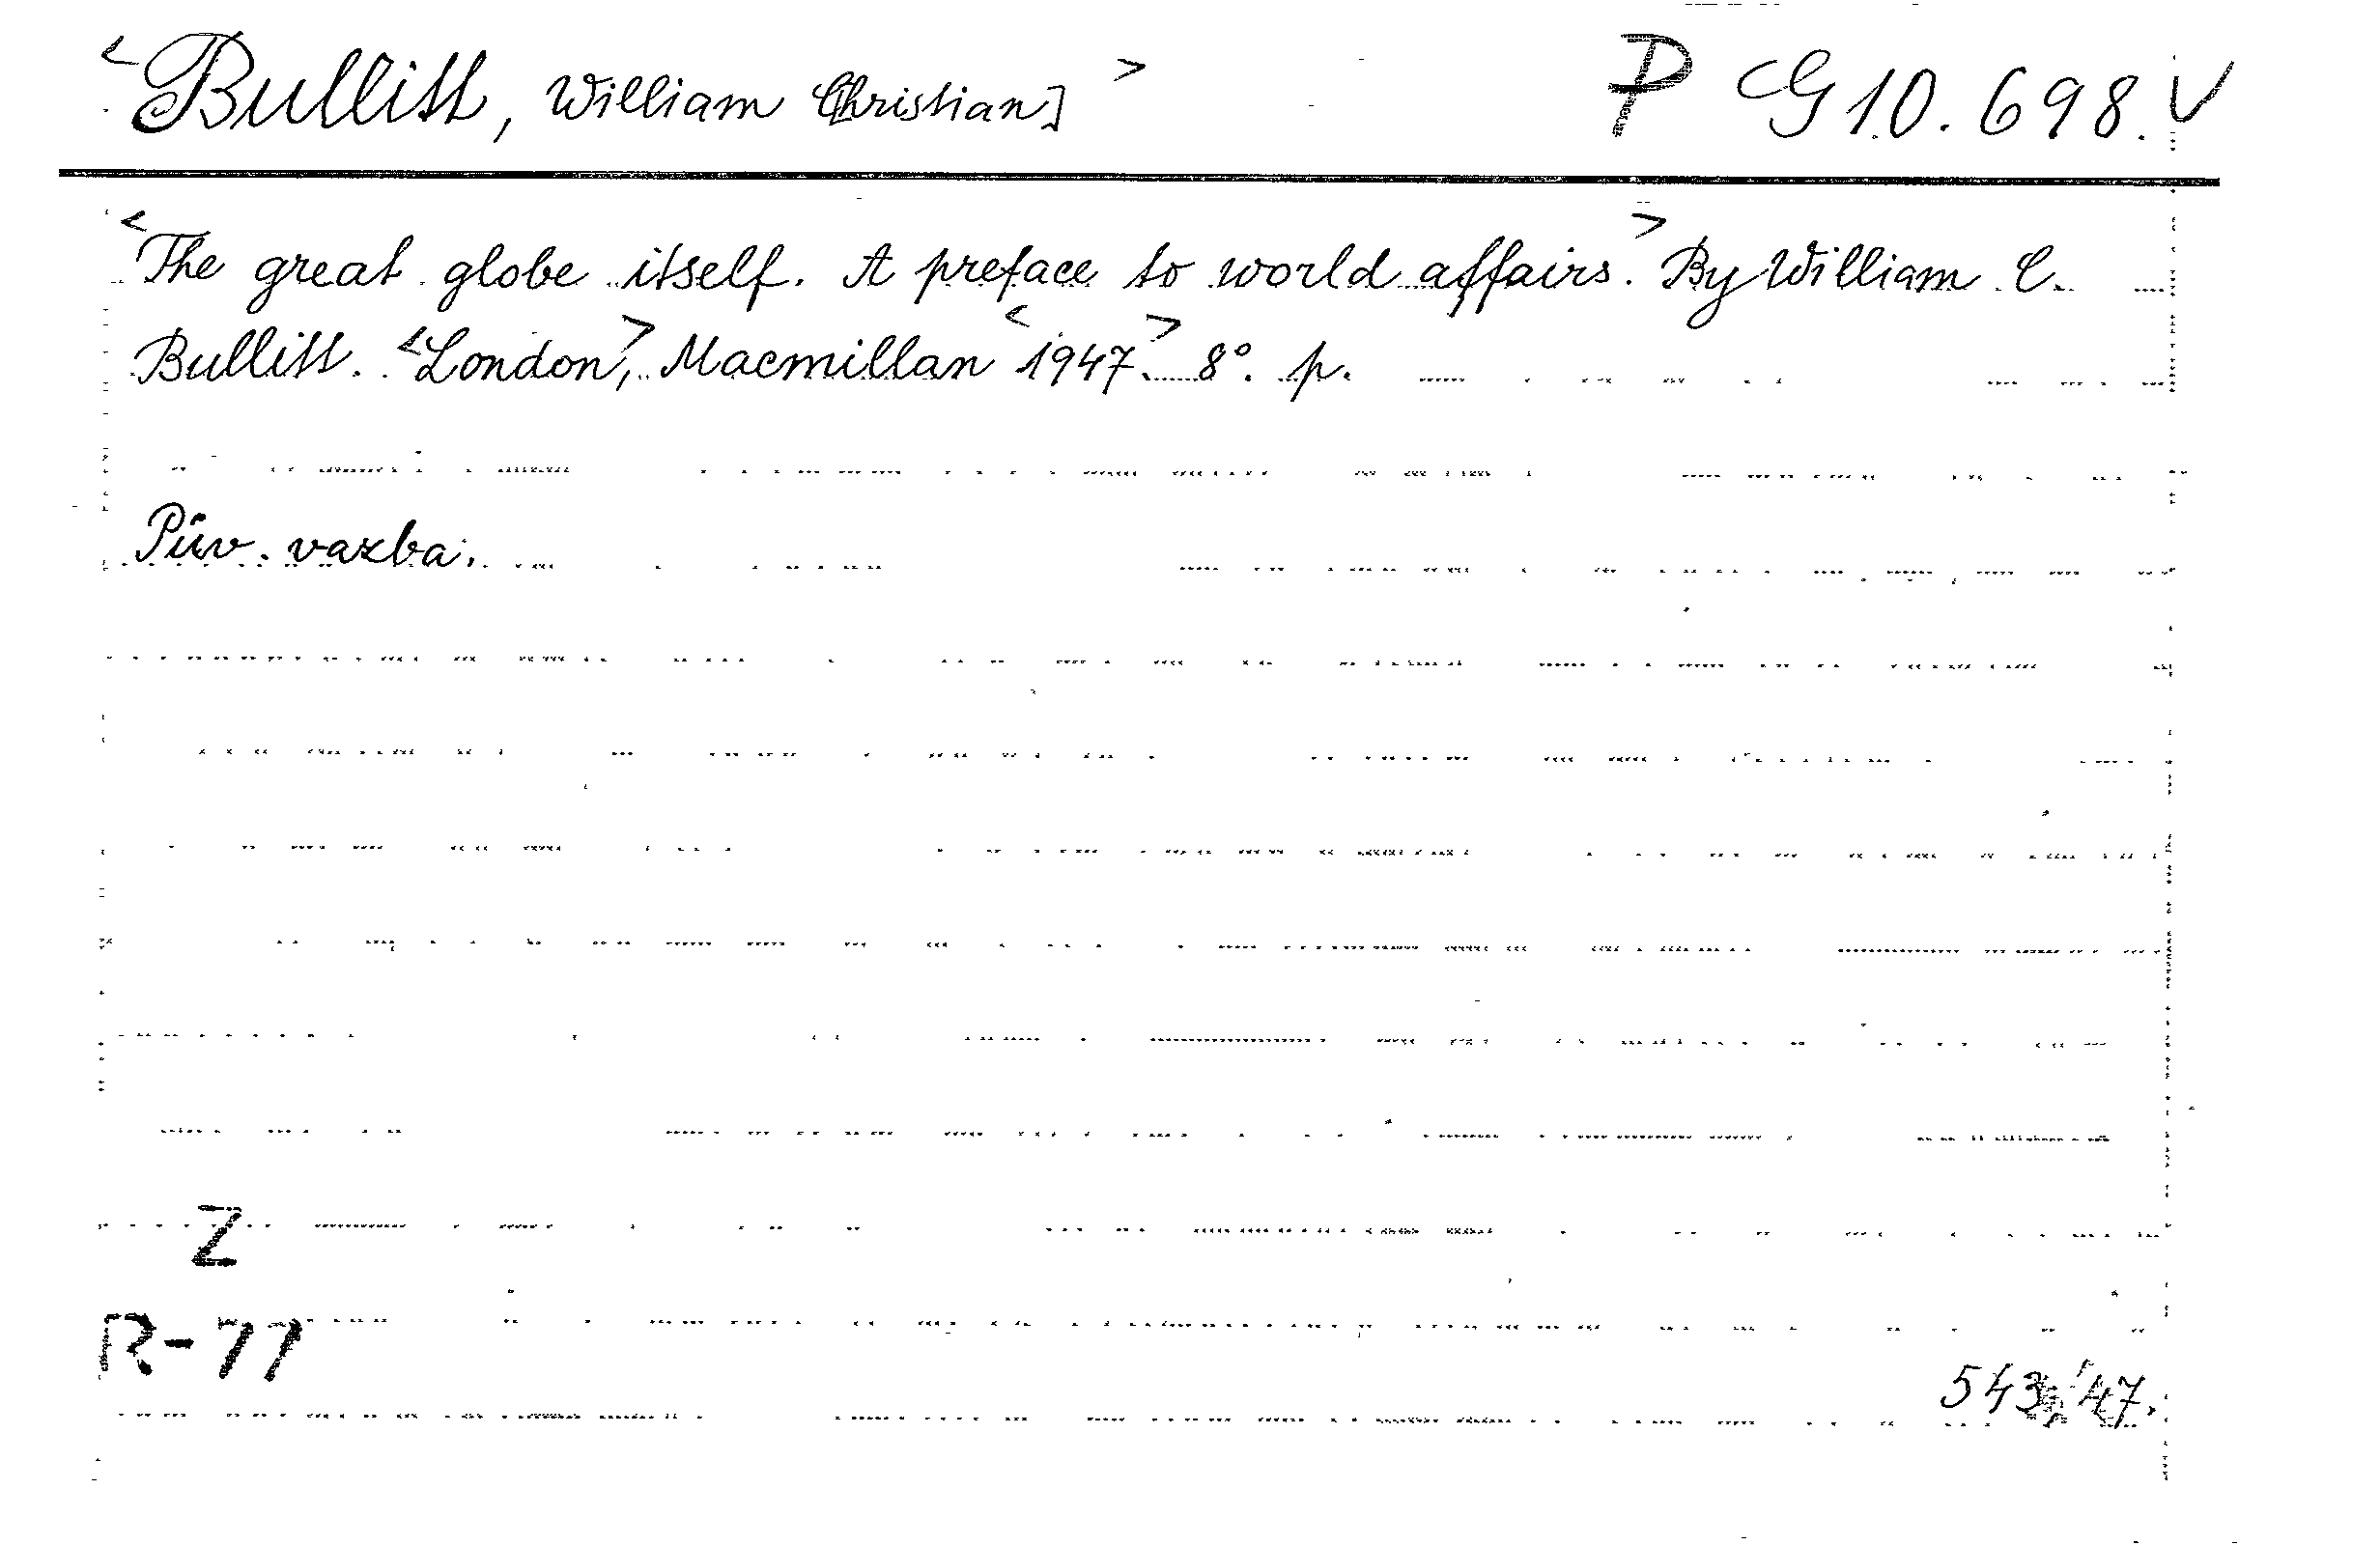 <Bullitt, William C[hristian]> P G 10.698. V
<The great globe itself. A preface to world affairs.> By William C.
Bullitt. <London>, Macmillan <1947.> 8°. p.
Pův. vazba.
Z
R-77
543/'47.